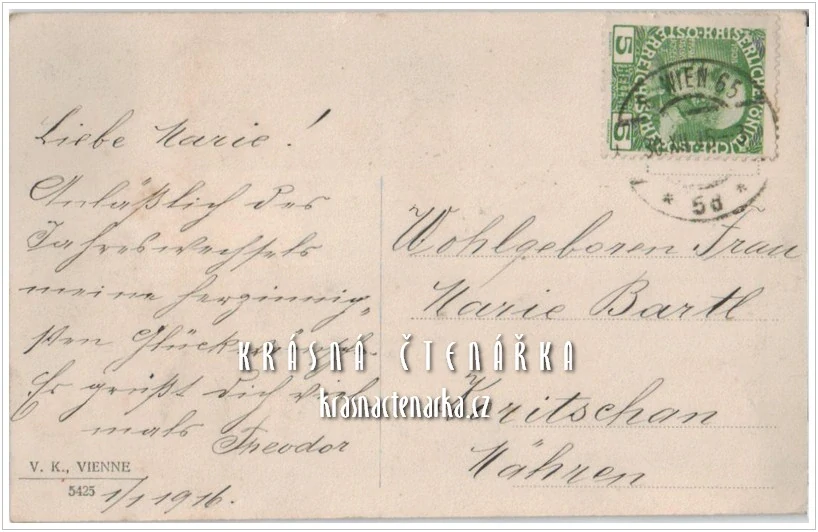 Liebe Marie!
Anläßlich des
Jahreswechsels
meine herzinnig„
sten Glückwünsche.
Es grüßt dich viel
mals Theodor
1/1 1916.
V. K., VIENNE
5425
KAISERLICHE KÖNIGLICHE ÖSTERREICHISCHE
5 HELLER 5
WIEN 65
30 XII 15
* 5d *
Wohlgeboren Frau
Marie Bartl
Kritschan
Mähren
KRÁSNÁ ČTENÁŘKA
krasnactenarka.cz